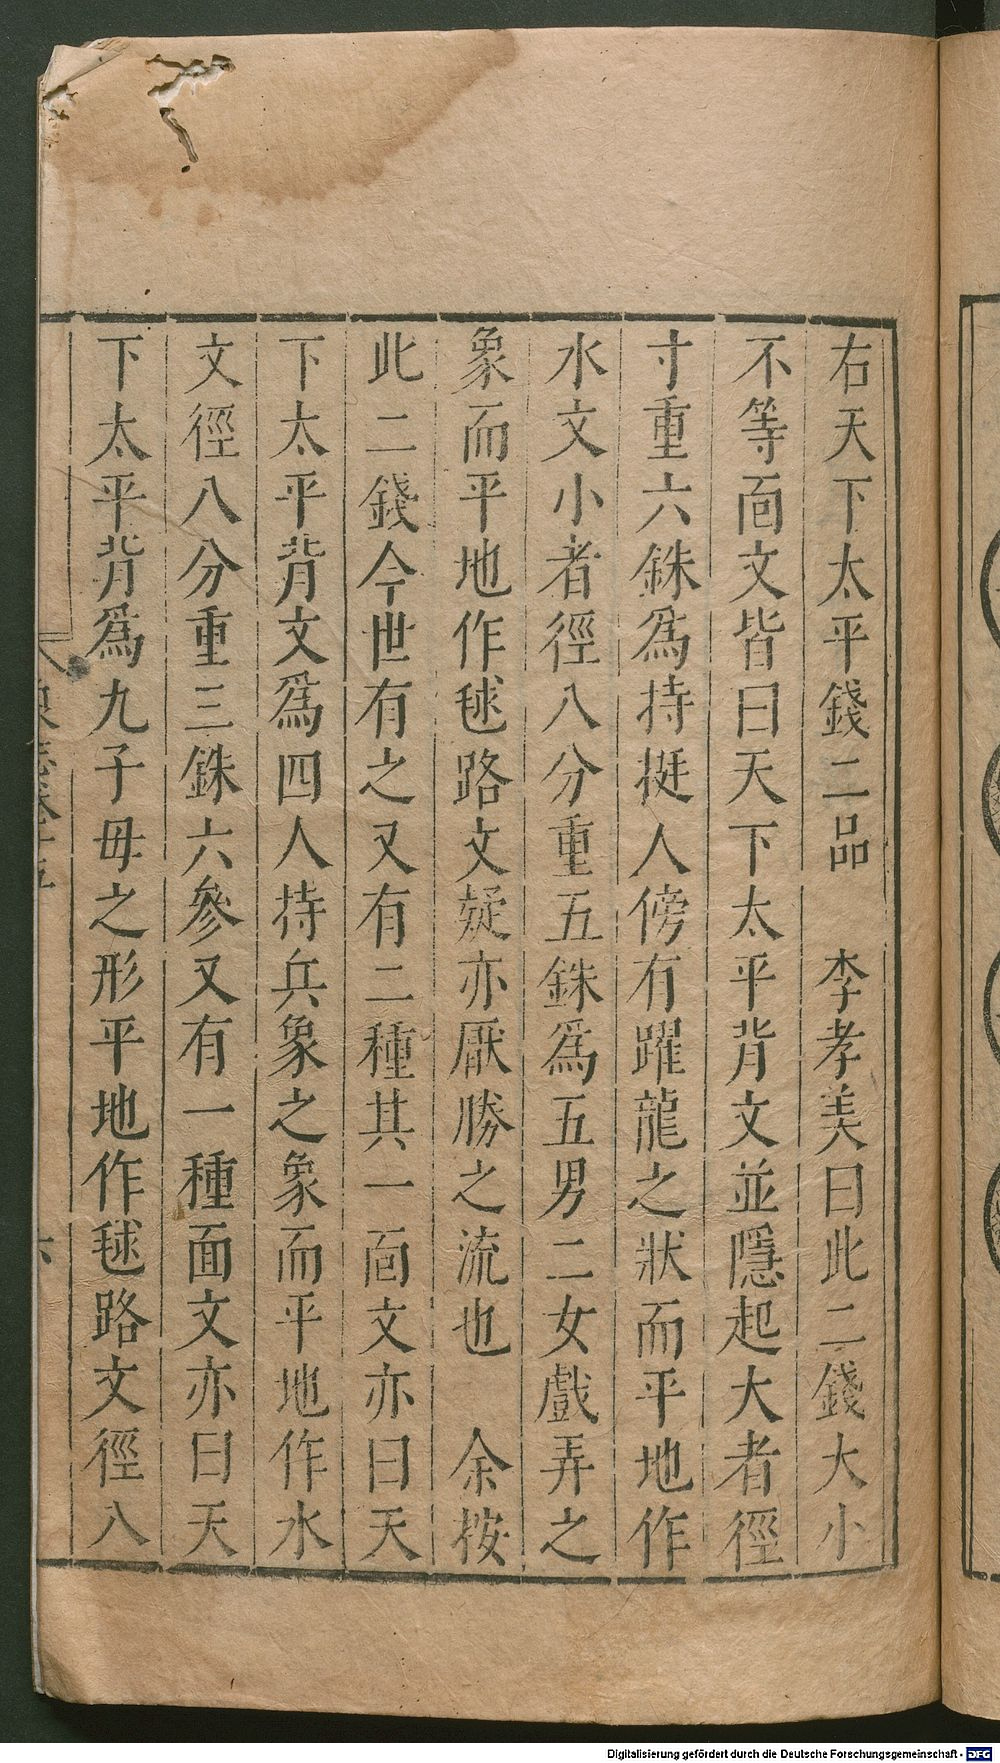 右天下太平錢二品　李孝美曰此二錢大小
不等面文皆曰天下太平背文並隱起大者徑
寸重六銖爲持挺人傍有躍龍之狀而平地作
水文小者徑八分重五銖爲五男二女戲弄之
象而平地作毬路文疑亦厭勝之流也　余按
此二錢今世有之又有二種其一面文亦曰天
下太平背文爲四人持兵象之象而平地作水
文徑八分重三銖六參又有一種面文亦曰天
下太平背爲九子母之形平地作毬路文徑八
六
Digitalisierung gefördert durch die Deutsche Forschungsgemeinschaft - DFG